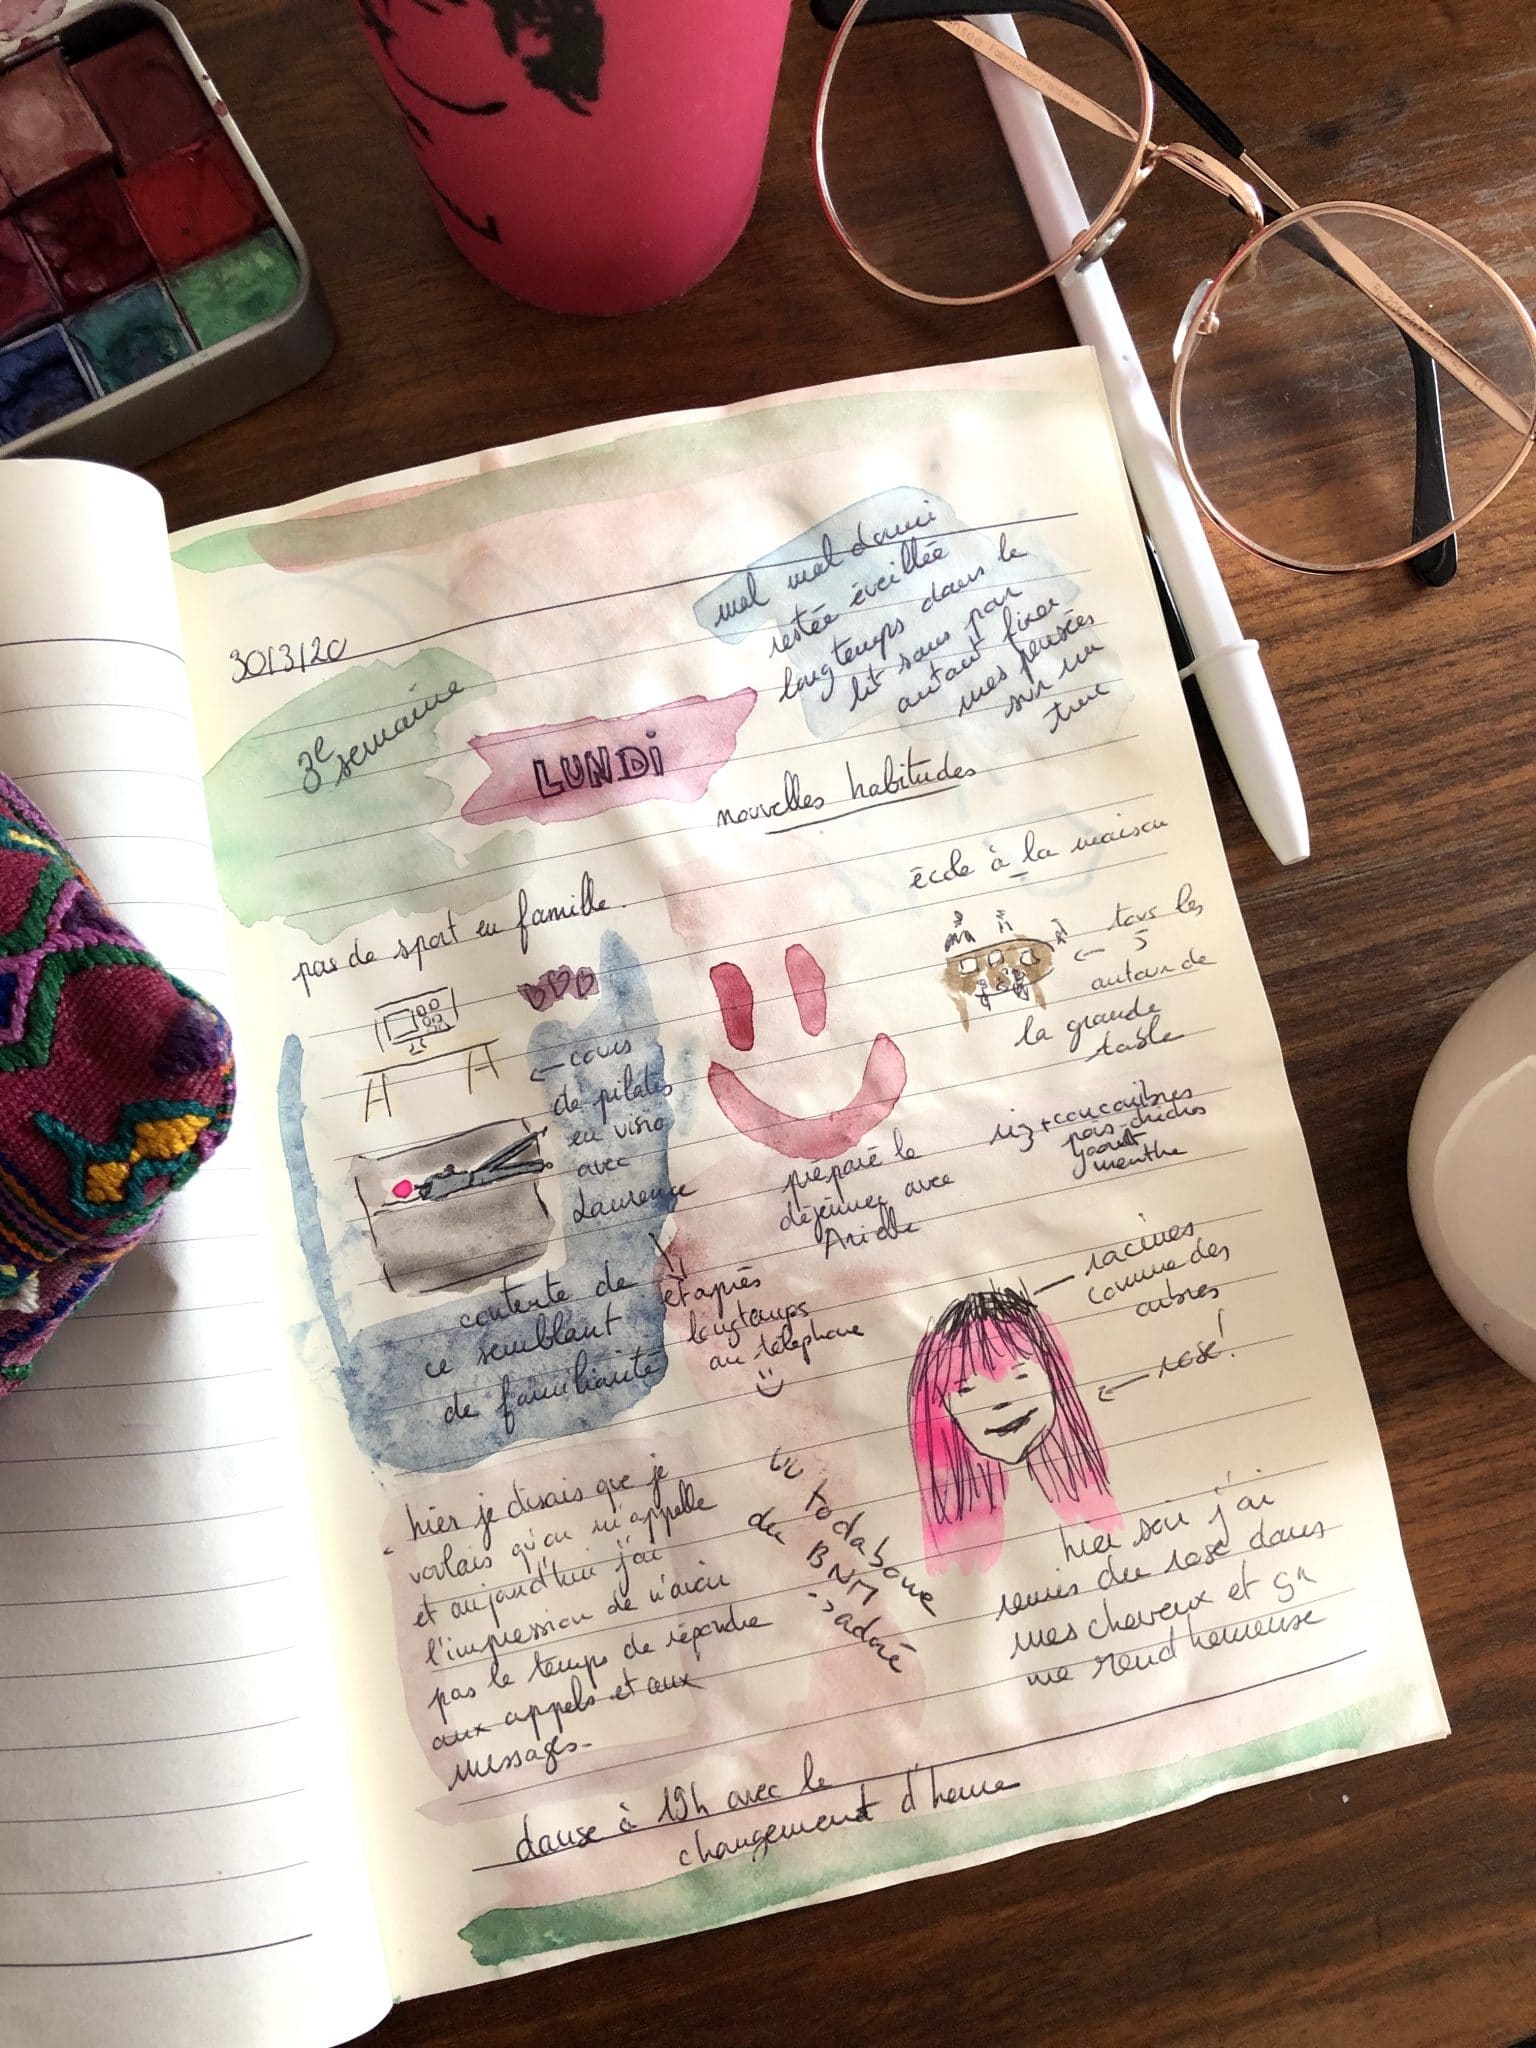 30/3/20
3e semaine
LUNDi
mal mal dormi
restée éveillée
longtemps dans le
lit sans pour
autant fixer
mes pensées
sur un
truc
nouvelles habitudes
pas de sport en famille.
école à la maison
← tous les
5
autour de
la grande
table
← cours
de pilates
en visio
avec
Laurence
contente de
ce semblant
de familiarité
et après
longtemps
au téléphone
préparé le
déjeuner avec
Arielle
riz + concombres
pois-chiches
yaourt
menthe
racines
comme des
arbres
← rose!
hier je disais que je
voulais qu'on m'appelle
et aujourd'hui j'ai
l'impression de n'avoir
pas le temps de répondre
aux appels et aux
messages.
du BNM
adoré
hier soir j'ai
remis du rose dans
mes cheveux et ça
me rend heureuse
danse à 19h avec le
changement d'heure